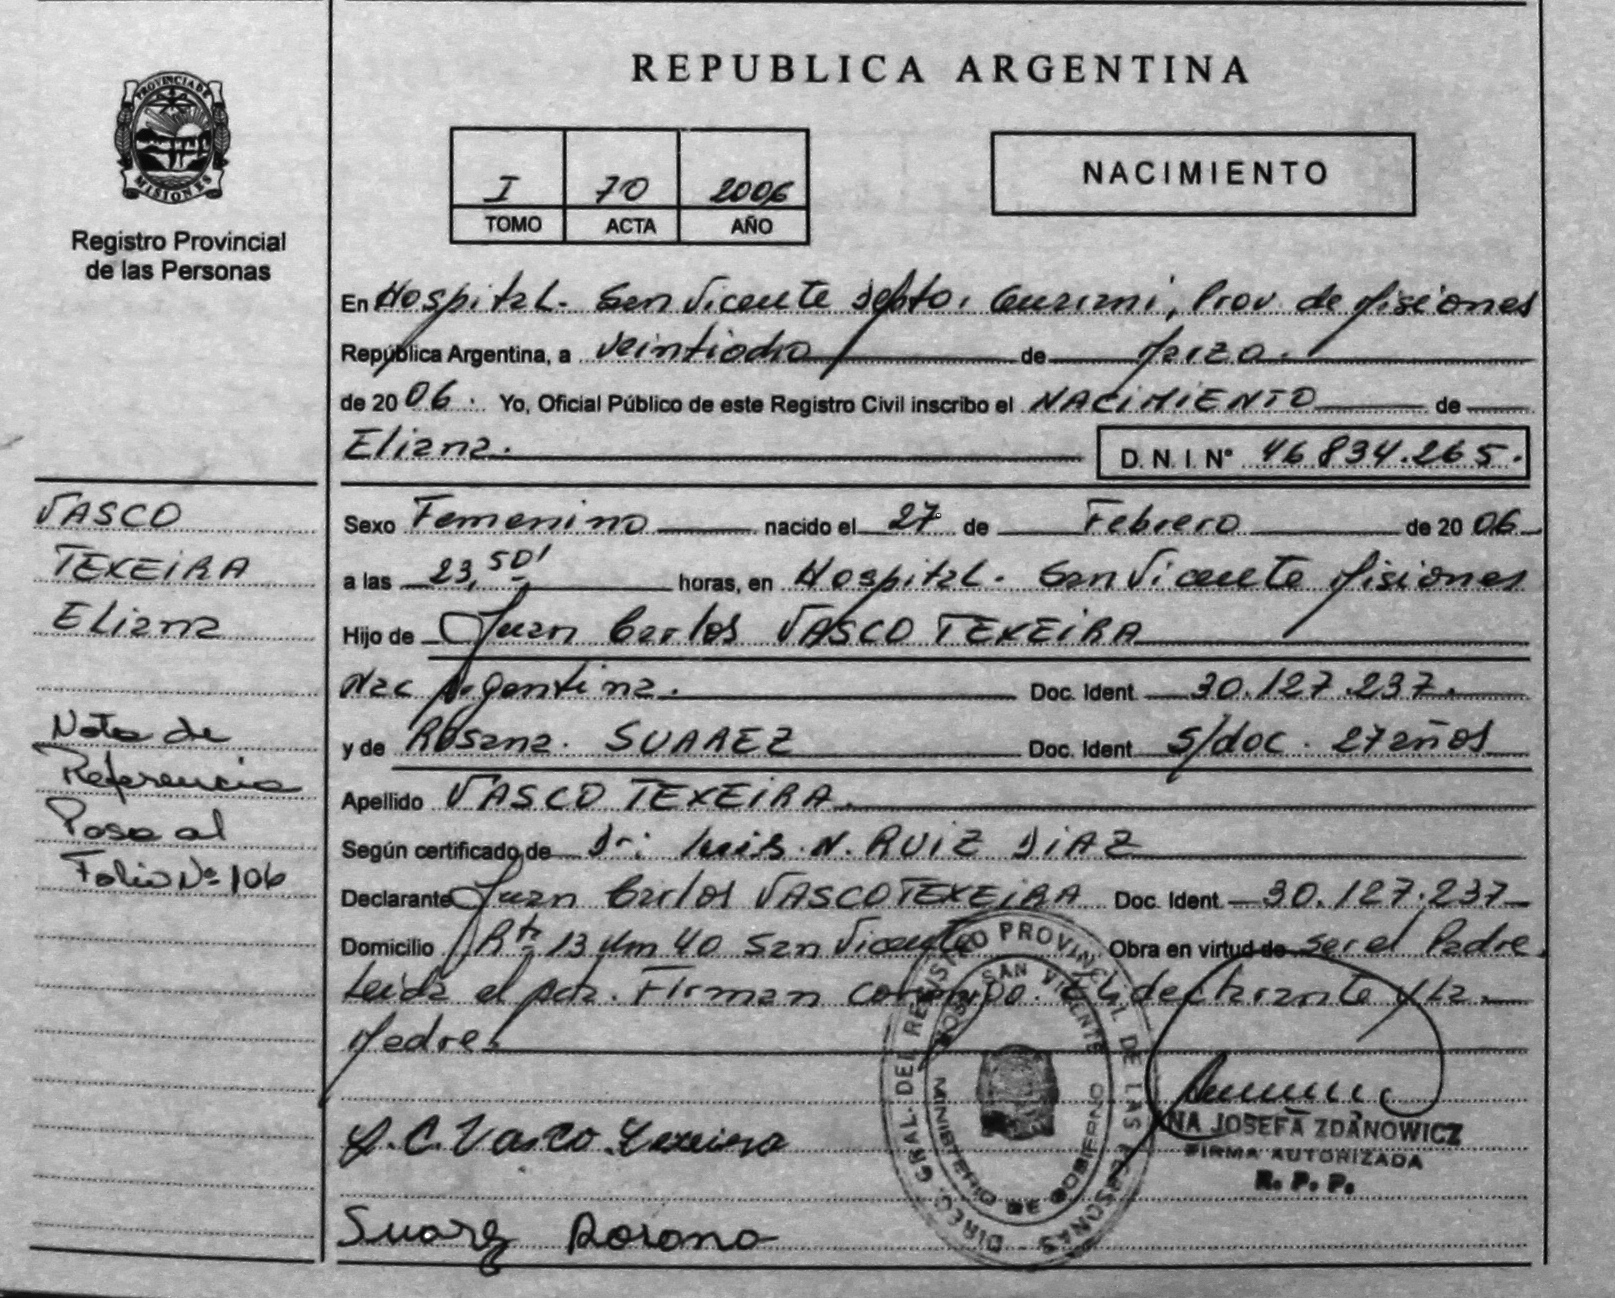 PROVINCIA DE
MISIONES
Registro Provincial
de las Personas
REPUBLICA ARGENTINA
I 70 2006
TOMO ACTA AÑO
NACIMIENTO
En Hospital. San Vicente Depto. Guarani, Prov. de Misiones
República Argentina, a veintiocho de Marzo.
de 2006. Yo, Oficial Público de este Registro Civil inscribo el NACIMIENTO de
Eliana. D. N. I. N° 46.834.265.
VASCO
TEXEIRA
Eliana
Nota de
Referencia
Pasa al
Folio Nº 106
Sexo Femenino nacido el 27 de Febrero de 2006
a las 23,50' horas, en Hospital. San Vicente Misiones
Hijo de Juan Carlos VASCO TEXEIRA
Nac Argentina. Doc. Ident. 30.127.237.
y de Rosana. SUAREZ Doc. Ident. s/doc. 27 años
Apellido VASCO TEXEIRA.
Según certificado de Dr: Luis. N. RUIZ DIAZ
Declarante Juan Carlos VASCO TEXEIRA Doc. Ident. 30.127.237
Domicilio Rta 13 Km 40 San Vicente Obra en virtud de ser el Padre
Leída el acta. Firman conmigo. El declarante y la
Madre.
J. C. Vasco Texeira
Suarez Rosana
DIREC. GRAL. DEL REGISTRO PROVINCIAL DE LAS PERSONAS
HOSP. SAN VICENTE
MINISTERIO DE GOBIERNO
NA JOSEFA ZDANOWICZ
FIRMA AUTORIZADA
R. P. P.